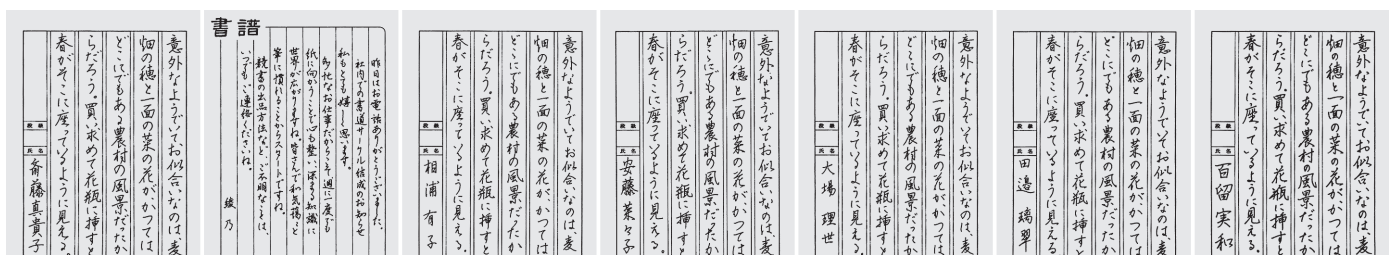 意外なようでいてお似合いなのは、麦
畑の穂と一面の菜の花が、かつては
どこにでもある農村の風景だったか
らだろう。買い求めて花瓶に挿すと
春がそこに座っているように見える。
段級
氏名
斎藤真貴子
書譜
昨日はお電話ありがとうございました。
社内での書道サークル結成のお知らせ
私もとても嬉しく思います。
多忙なお仕事だからこそ週に一度でも
紙に向かうことで心も整い、深まる知識に
世界が広がりますね。皆さんで和気藹々と
筆に慣れることからスタートですね。
競書の出品方法など、ご不明なことは、
いつでもご連絡くださいね。
綾乃
意外なようでいてお似合いなのは、麦
畑の穂と一面の菜の花が、かつては
どこにでもある農村の風景だったか
らだろう。買い求めて花瓶に挿すと
春がそこに座っているように見える。
段級
氏名
相浦有子
意外なようでいてお似合いなのは、麦
畑の穂と一面の菜の花が、かつては
どこにでもある農村の風景だったか
らだろう。買い求めて花瓶に挿すと
春がそこに座っているように見える。
段級
氏名
安藤菜々子
意外なようでいてお似合いなのは、麦
畑の穂と一面の菜の花が、かつては
どこにでもある農村の風景だったか
らだろう。買い求めて花瓶に挿すと
春がそこに座っているように見える。
段級
氏名
大場理世
意外なようでいてお似合いなのは、麦
畑の穂と一面の菜の花が、かつては
どこにでもある農村の風景だったか
らだろう。買い求めて花瓶に挿すと
春がそこに座っているように見える。
段級
氏名
田邉瑞翠
意外なようでいてお似合いなのは、麦
畑の穂と一面の菜の花が、かつては
どこにでもある農村の風景だったか
らだろう。買い求めて花瓶に挿すと
春がそこに座っているように見える。
段級
氏名
百留実和